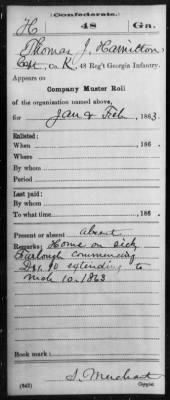 (Confederate.)
H 48 Ga.
Thomas J. Hamilton
Capt, Co. K, 48 Reg't Georgia Infantry.
Appears on
Company Muster Roll
of the organization named above,
for Jan & Feb, 1863.
Enlisted:
When , 186 .
Where
By whom
Period
Last paid:
By whom
To what time , 186 .
Present or absent absent
Remarks: Home on sick
Furlough commencing
10 extending to
Mch 10 1863
Book mark:
(642) S. Merchant
Copyist.